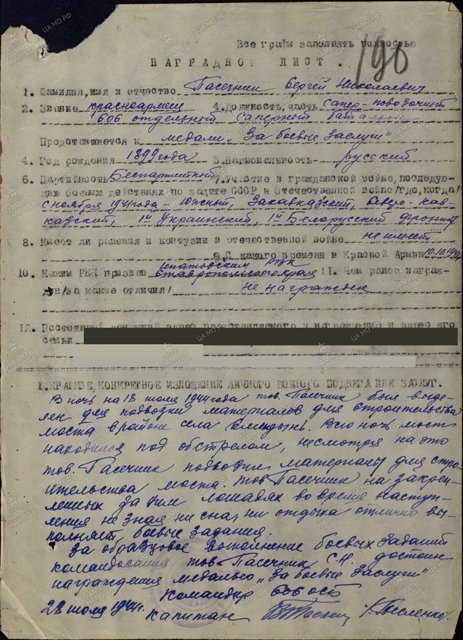 Все графы заполнять полностью
190
НАГРАДНОЙ ЛИСТ.
1. Фамилия, имя и отчество Пасечник Сергей Николаевич
2. Звание красноармеец 4. Должность, часть сапер-повозочный
606 отдельный саперный батальон
Представляется к медали "За боевые заслуги"
4. Год рождения 1899 года 5. Национальность русский
6. Партийность Беспартийный, Участие в гражданской войне, последую-
щих боевых действиях по защите СССР и отечественной войне /где, когда/
с ноября 1941 года - Южный, Закавказский, Северо-Кав-
казский, 1й Украинский, 1й Белорусский фронты
8. Имеет ли ранения и контузии в отечественной войне не имеет
9. С какого времени в Красной Армии
10. Каким РВК призван Ипатовским РВК
Ставропольского края 11. Чем ранее награж-
ден /за какие отличия/ не награжден
12. Постоянный домашний адрес представляемого к награждению и адрес его
семьи
1. КРАТКОЕ, КОНКРЕТНОЕ ИЗЛОЖЕНИЕ ЛИЧНОГО БОЕВОГО ПОДВИГА ИЛИ ЗАСЛУГ.
В ночь на 18 июля 1944 года тов. Пасечник был выде-
лен для подвозки материалов для строительства
моста в районе села. Всю ночь мост
находился под обстрелом, несмотря на это
тов. Пасечник подвозил материалы для стро-
ительства моста. Тов. Пасечник на закреп-
ленных за ним лошадях во время наступ-
ления не зная ни сна, ни отдыха отлично вы-
полнял боевые задания.
За образцовое выполнение боевых заданий
командования тов. Пасечник С.Н. достоин
награждения медалью "За боевые заслуги"
Командир 606 осб
28 июля 1944 г. капитан